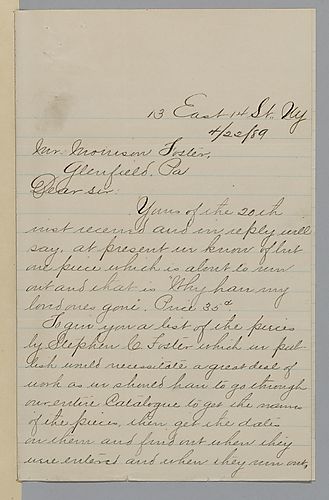 13 East 14 St. Ny
4/22/89
Mr Morrison Foster,
Glenfield, Pa
Dear sir:
Yours of the 20th
inst received and in reply will
say, at present we know of but
one piece which is about to run
out and that is "Why have my
loved ones gone". Price 35¢.
To give you a list of the pieces
by Stephen C Foster which we pub
lish would necessitate a great deal of
work as we should have to go through
our entire Catalogue to get the names
of the pieces, then get the dates
on them and find out when they
were entered and when they run out,